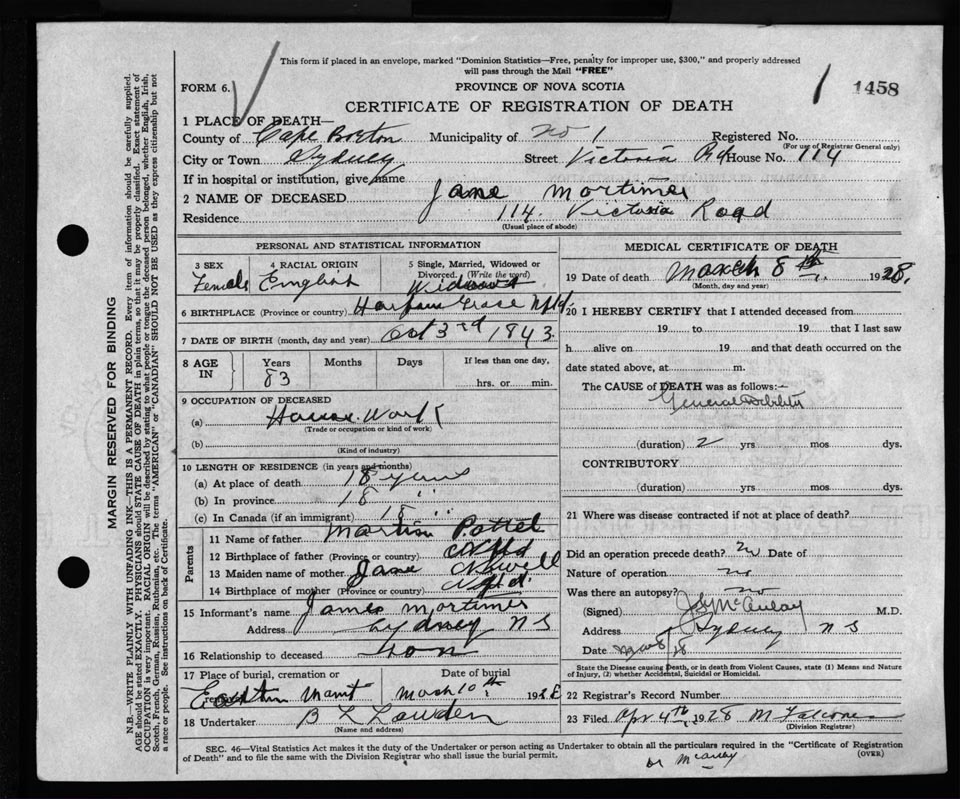 This form if placed in an envelope, marked "Dominion Statistics—Free, penalty for improper use, $300," and properly addressed
will pass through the Mail "FREE"
FORM 6.
PROVINCE OF NOVA SCOTIA
1458
CERTIFICATE OF REGISTRATION OF DEATH
1 PLACE OF DEATH—
County of Cape Breton Municipality of No 1 Registered No.
(For use of Registrar General only)
City or Town Sydney Street Victoria Rd House No. 114
If in hospital or institution, give name
2 NAME OF DECEASED Jane Mortimer
Residence 114. Victoria Road
(Usual place of abode)
PERSONAL AND STATISTICAL INFORMATION
3 SEX
Female
4 RACIAL ORIGIN
English
5 Single, Married, Widowed or
Divorced. (Write the word)
6 BIRTHPLACE (Province or country) Grace Nfld.
7 DATE OF BIRTH (month, day and year) Oct 3rd 1843
8 AGE IN
Years Months Days If less than one day,
83
hrs. or min.
9 OCCUPATION OF DECEASED
(a) House Work
(Trade or occupation or kind of work)
(b)
(Kind of industry)
10 LENGTH OF RESIDENCE (in years and months)
(a) At place of death 18 years
(b) In province 18 "
(c) In Canada (if an immigrant) 18 "
Parents
11 Name of father
12 Birthplace of father (Province or country) Nfld
13 Maiden name of mother Jane Newell
14 Birthplace of mother (Province or country) Nfld.
15 Informant's name James Mortimer
Address Sydney NS
16 Relationship to deceased Son
17 Place of burial, cremation or Date of burial
10th, 1928
18 Undertaker B L Lowden
(Name and address)
MEDICAL CERTIFICATE OF DEATH
19 Date of death March 8th, 1928.
(Month, day and year)
20 I HEREBY CERTIFY that I attended deceased from
19 to 19 that I last saw
h alive on 19 and that death occurred on the
date stated above, at m.
The CAUSE of DEATH was as follows:—
General debility
(duration) 2 yrs mos dys.
CONTRIBUTORY
(duration) yrs mos dys.
21 Where was disease contracted if not at place of death?
Did an operation precede death? No Date of
Nature of operation no
Was there an autopsy? no
(Signed) McAulay M.D.
Address Sydney NS
Date
State the Disease causing Death, or in death from Violent Causes, state (1) Means and Nature
of Injury, (2) whether Accidental, Suicidal or Homicidal.
22 Registrar's Record Number
23 Filed Apr 4th, 1928
(Division Registrar)
SEC. 46—Vital Statistics Act makes it the duty of the Undertaker or person acting as Undertaker to obtain all the particulars required in the "Certificate of Registration
of Death" and to file the same with the Division Registrar who shall issue the burial permit. (OVER)
MARGIN RESERVED FOR BINDING
N.B.—WRITE PLAINLY WITH UNFADING INK—THIS IS A PERMANENT RECORD. Every item of information should be carefully supplied.
AGE should be stated EXACTLY. PHYSICIANS should STATE CAUSE OF DEATH in plain terms, so that it may be properly classified. Exact statement of
OCCUPATION is very important. RACIAL ORIGIN will be described by stating to what people or tongue the deceased person belonged, whether English, Irish,
Scotch, French, German, Russian, Ruthenian, etc. The terms "AMERICAN" or "CANADIAN" SHOULD NOT BE USED as they express citizenship but not
a race or people. See instructions on back of Certificate.